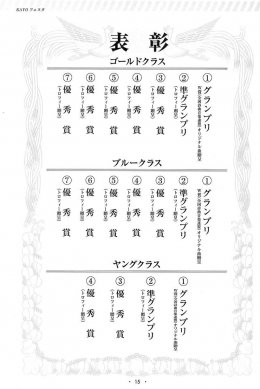 KATOフェスタ
表彰
ゴールドクラス
①グランプリ
②準グランプリ
(トロフィー贈呈)
③優秀賞
(トロフィー贈呈)
④優秀賞
(トロフィー贈呈)
⑤優秀賞
(トロフィー贈呈)
⑥優秀賞
(トロフィー贈呈)
⑦優秀賞
(トロフィー贈呈)
ブルークラス
①グランプリ
②準グランプリ
(トロフィー贈呈)
③優秀賞
(トロフィー贈呈)
④優秀賞
(トロフィー贈呈)
⑤優秀賞
(トロフィー贈呈)
⑥優秀賞
(トロフィー贈呈)
⑦優秀賞
(トロフィー贈呈)
ヤングクラス
①グランプリ
②準グランプリ
(トロフィー贈呈)
③優秀賞
(トロフィー贈呈)
④優秀賞
(トロフィー贈呈)
・15・